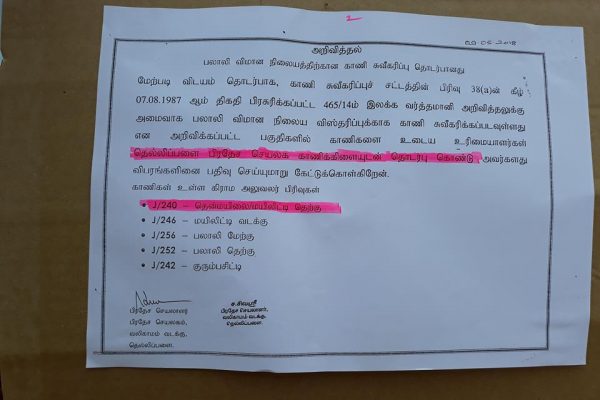 2
02-05-2018
அறிவித்தல்
பலாலி விமான நிலையத்திற்கான காணி சுவீகரிப்பு தொடர்பானது
மேற்படி விடயம் தொடர்பாக, காணி சுவீகரிப்புச் சட்டத்தின் பிரிவு 38(a)ன் கீழ்
07.08.1987 ஆம் திகதி பிரசுரிக்கப்பட்ட 465/14ம் இலக்க வர்த்தமானி அறிவித்தலுக்கு
அமைவாக பலாலி விமான நிலைய விஸ்தரிப்புக்காக காணி சுவீகரிக்கப்படவுள்ளது
என அறிவிக்கப்பட்ட பகுதிகளில் காணிகளை உடைய உரிமையாளர்கள்
தெல்லிப்பளை பிரதேச செயலக காணிக்கிளையுடன் தொடர்பு கொண்டு அவர்களது
விபரங்களினை பதிவு செய்யுமாறு கேட்டுக்கொள்கிறேன்.
காணிகள் உள்ள கிராம அலுவலர் பிரிவுகள்
• J/240 – தென்மயிலை/மயிலிட்டி தெற்கு
• J/246 – மயிலிட்டி வடக்கு
• J/256 – பலாலி மேற்கு
• J/252 – பலாலி தெற்கு
• J/242 – குரும்பசிட்டி
பிரதேச செயலாளர்
பிரதேச செயலகம்,
வலிகாமம் வடக்கு,
தெல்லிப்பளை.
ச.சிவஸ்ரீ
பிரதேச செயலாளர்,
வலிகாமம் வடக்கு,
தெல்லிப்பளை.